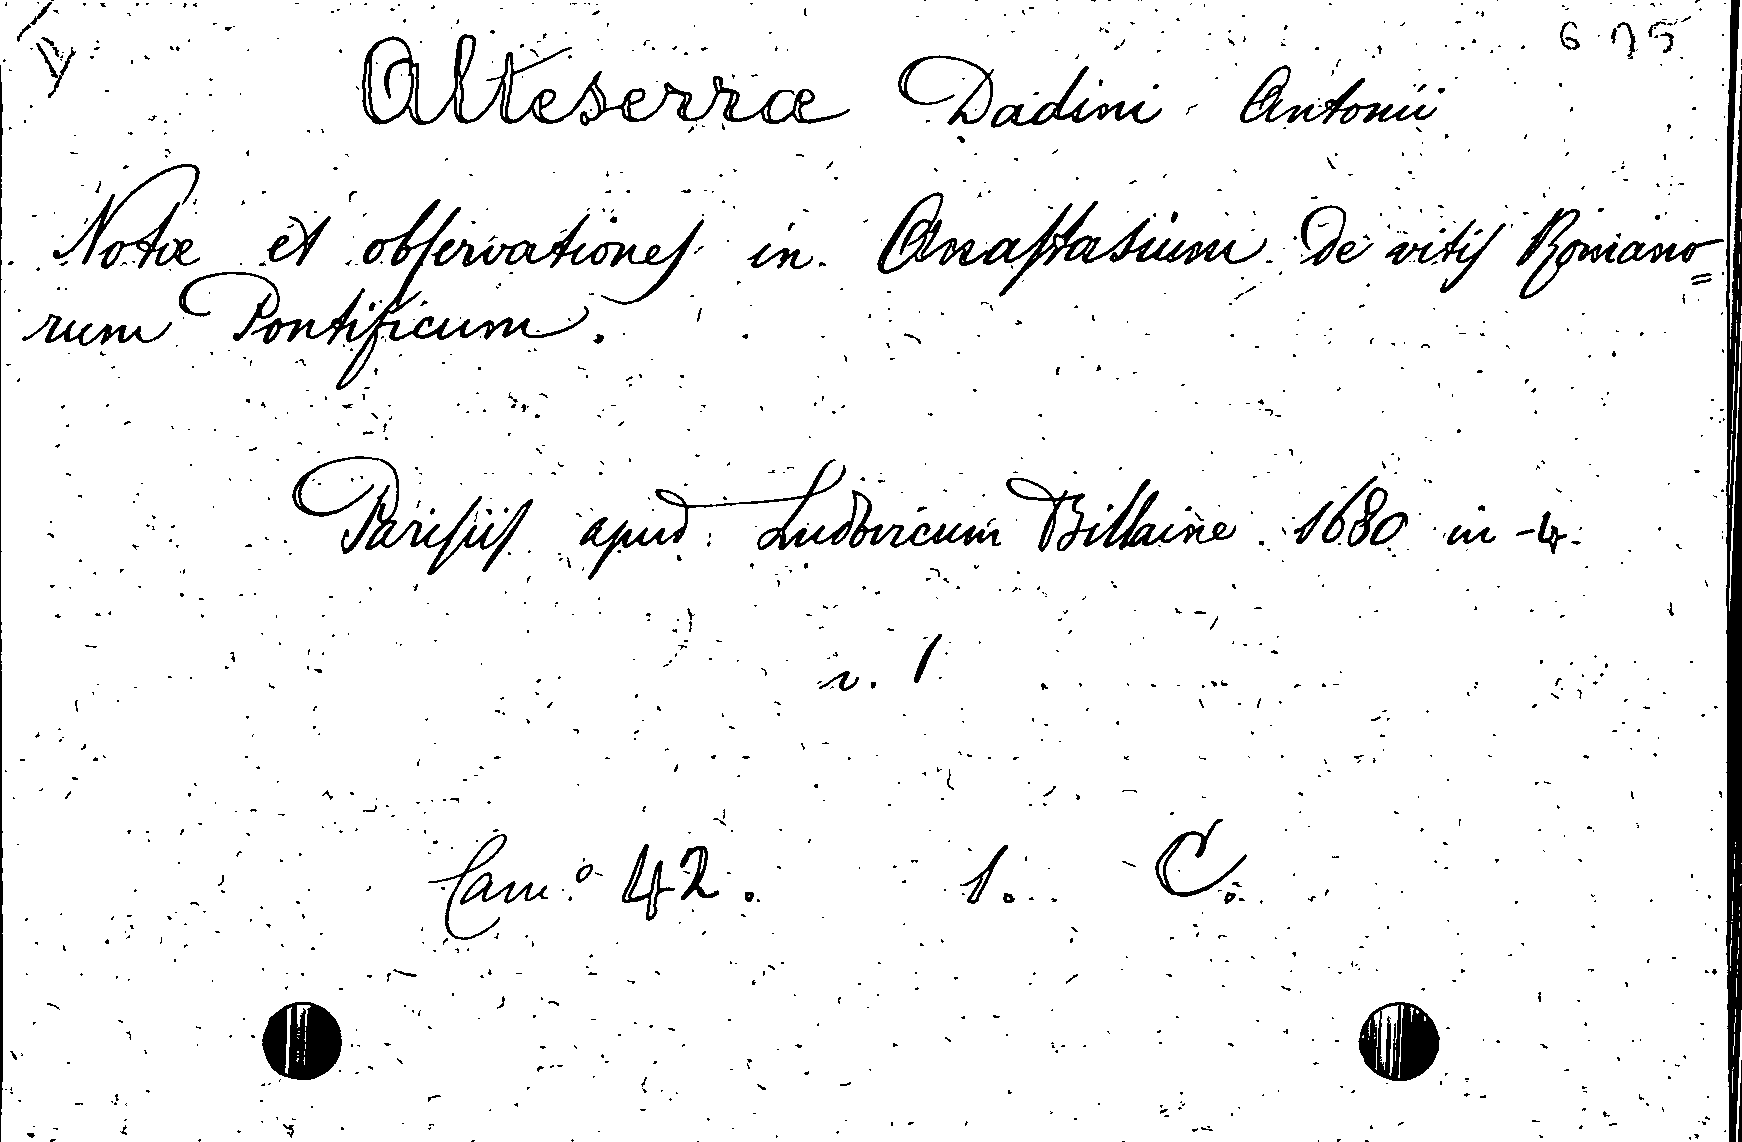 6 75
Alteserræ Dadini Antonii
Notæ et observationes in Anastasium de vitis Romano=
rum Pontificum.
Parisiis apud Ludovicum Billaine 1680 in-4.
v. 1
Cam.º 42. 1. C.